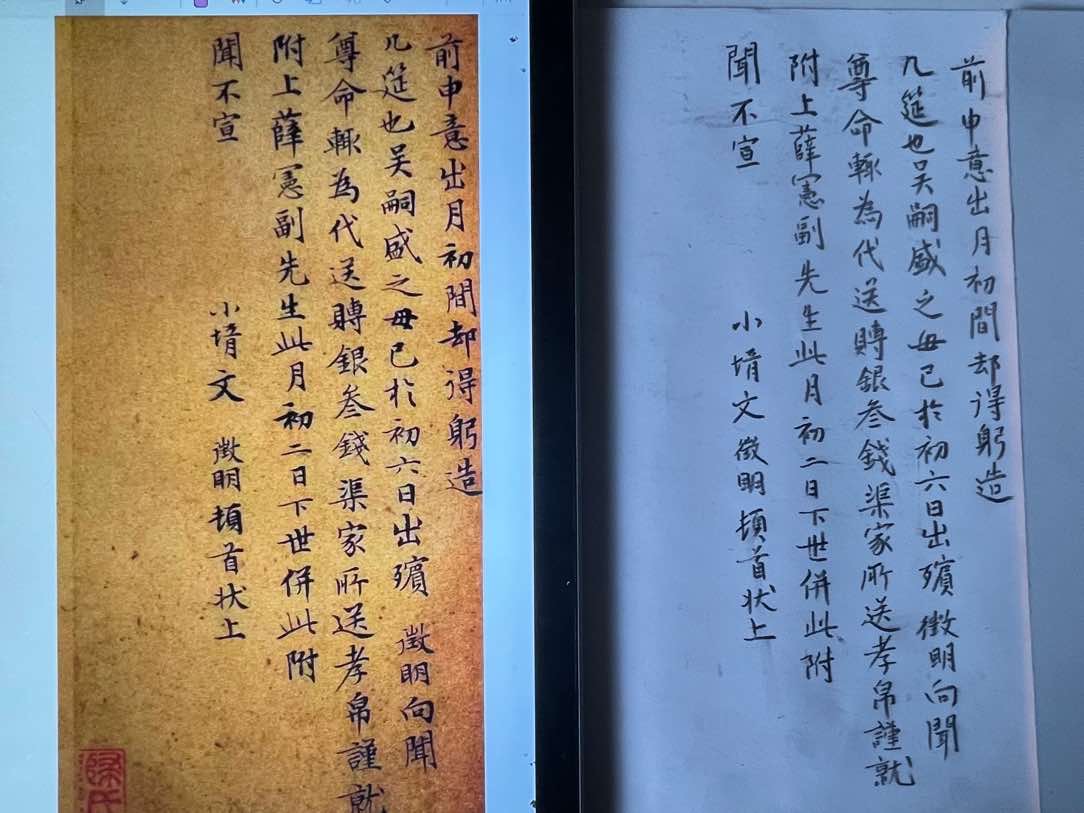 前申意出月初間却得躬造
几筵也吴嗣盛之母已於初六日出殯 徵明向聞
尊命輙為代送賻銀叁錢渠家所送孝帛謹就
附上薛憲副先生此月初二日下世併此附
聞不宣
小壻文 徵明頓首状上
前申意出月初間却得躬造
几筵也吴嗣盛之母已於初六日出殯徵明向聞
尊命輙為代送賻銀叁錢渠家所送孝帛謹就
附上薛憲副先生此月初二日下世併此附
聞不宣
小壻文徵明頓首状上